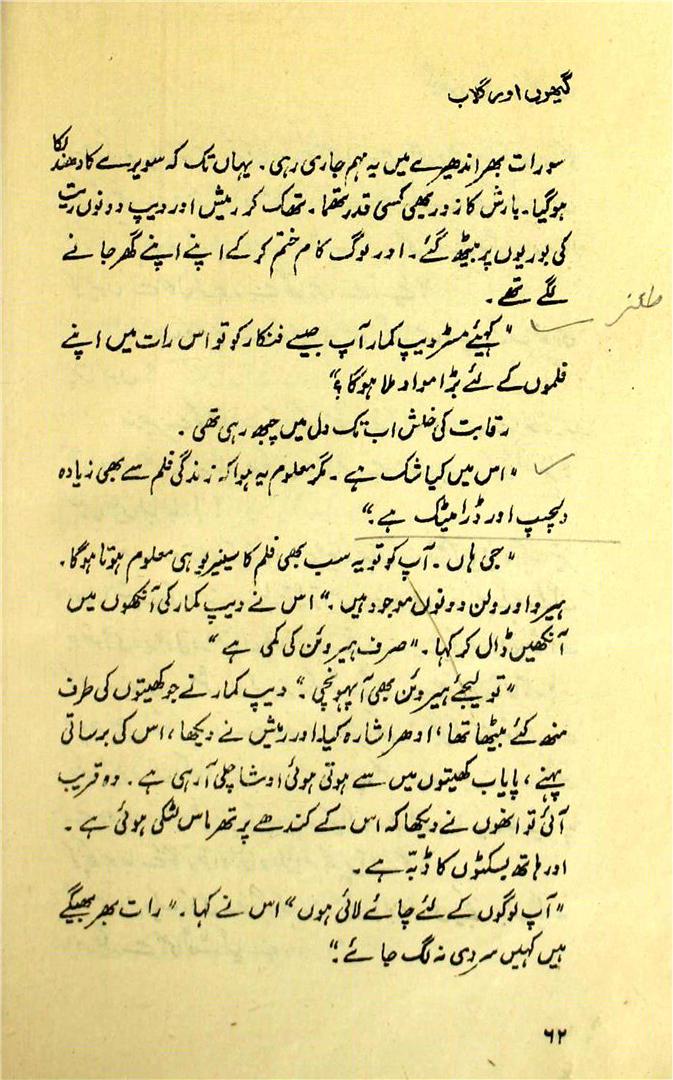 گیہوں اور گلاب
سو رات بھر اندھیرے میں یہ مہم جاری رہی۔ یہاں تک کہ سویرے کا دھندلکا
ہوگیا۔ بارش کا زور بھی کسی قدر تھما۔ تھک کر رمیش اور دیپ دونوں ریت
کی بوریوں پر بیٹھ گئے۔ اور لوگ کام ختم کرکے اپنے اپنے گھر جانے
لگے تھے۔
طنز
"کہیئے مسٹر دیپ کمار آپ جیسے فنکار کو تو اس رات میں اپنے
فلموں کے لئے بڑا مواد ملا ہوگا؟"
رقابت کی خلش اب تک دل میں چبھ رہی تھی۔
"اس میں کیا شک ہے۔ مگر معلوم یہ ہوا کہ زندگی فلم سے بھی زیادہ
دلچسپ اور ڈرامیٹک ہے۔"
"جی ہاں۔ آپ کو تو یہ سب بھی فلم کا سینیریو ہی معلوم ہوتا ہوگا۔
ہیرو اور ولن دونوں موجود ہیں۔" اس نے دیپ کمار کی آنکھوں میں
آنکھیں ڈال کر کہا۔ "صرف ہیروئن کی کمی ہے"
"تو لیجئے ہیروئن بھی آپہونچی۔" دیپ کمار نے جو کھیتوں کی طرف
منھ کئے بیٹھا تھا، ادھر اشارہ کیا اور رمیش نے دیکھا، اس کی برساتی
پہنے، پایاب کھیتوں میں سے ہوتی ہوئی اوشا چلی آرہی ہے۔ وہ قریب
آئی تو انھوں نے دیکھا کہ اس کے کندھے پر تھرماس لٹکی ہوئی ہے۔
اور ہاتھ بسکٹوں کا ڈبہ ہے۔
"آپ لوگوں کے لئے چائے لائی ہوں" اس نے کہا۔ "رات بھر بھیگے
ہیں کہیں سردی نہ لگ جائے۔"
۶۲